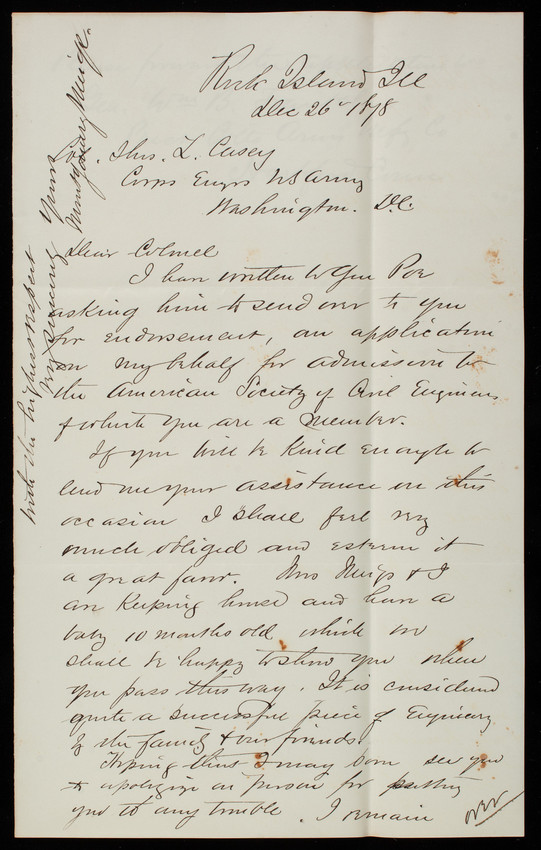 Rock Island Ill
Dec 26th 1878
Col. Thos. L. Casey
Corps Engrs US Army
Washington. D.C.
Dear Colonel
I have written to Gen Poe
asking him to send over to you
for endorsement, an application
on my behalf for admission to
the American Society of Civil Engineers
of which you are a member.
If you will be kind enough to
lend me your assistance on this
occasion I shall feel very
much obliged and esteem it
a great favor. Mrs Meigs & I
are keeping house and have a
baby 10 months old which we
shall be happy to show you when
you pass this way. It is considered
quite a successful piece of Enginery
by the family & our friends.
Hoping that I may soon see you
& apologize in person for putting
you to any trouble. I remain
over
with the highest respect
Yours
Montgomery Meigs.